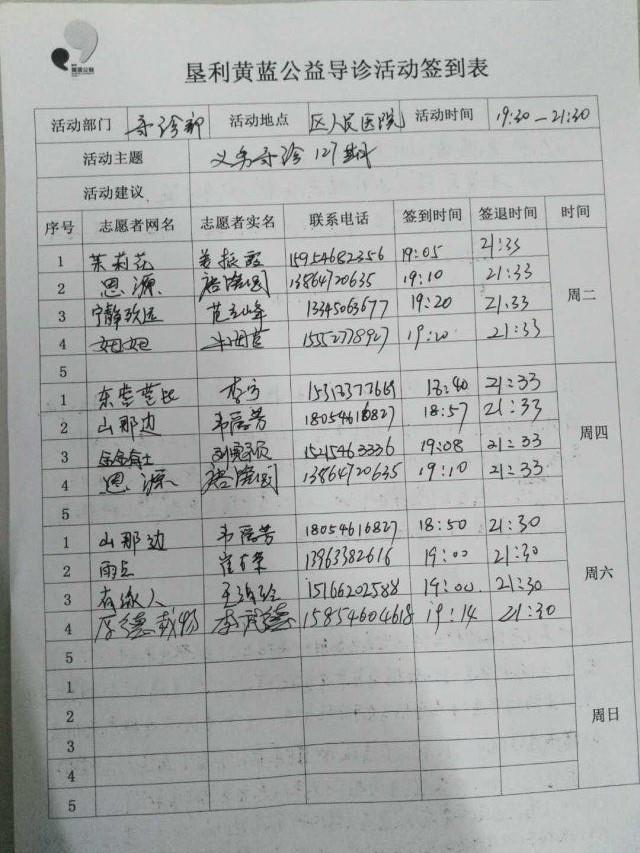 黄蓝公益
垦利黄蓝公益导诊活动签到表
活动部门 导诊部 活动地点 区人民医院 活动时间 19:30—21:30
活动主题 义务导诊127期
活动建议
序号 志愿者网名 志愿者实名 联系电话 签到时间 签退时间 时间
1 茉莉花 姜振霞 15954682356 19:05 21:33
2 思源 13864720635 19:10 21:33
周二
3 宁静致远 范立峰 13345063677 19:20 21:33
4 妞妞 15552778927 19:20 21:33
5
1 东营芭比 李宁 18:40 21:33
2 山那边 韦唇芳 18054616827 18:57 21:33
周四
3 15215463336 19:08 21:33
4 思源 13864720635 19:10 21:33
5
1 山那边 18054616827 18:50 21:30
2 雨点 13963382616 19:00 21:30
周六
3 有缘人 15166202588 19:00 21:30
4 厚德载物 李武德 15854604618 19:14 21:30
5
1
2
周日
3
4
5